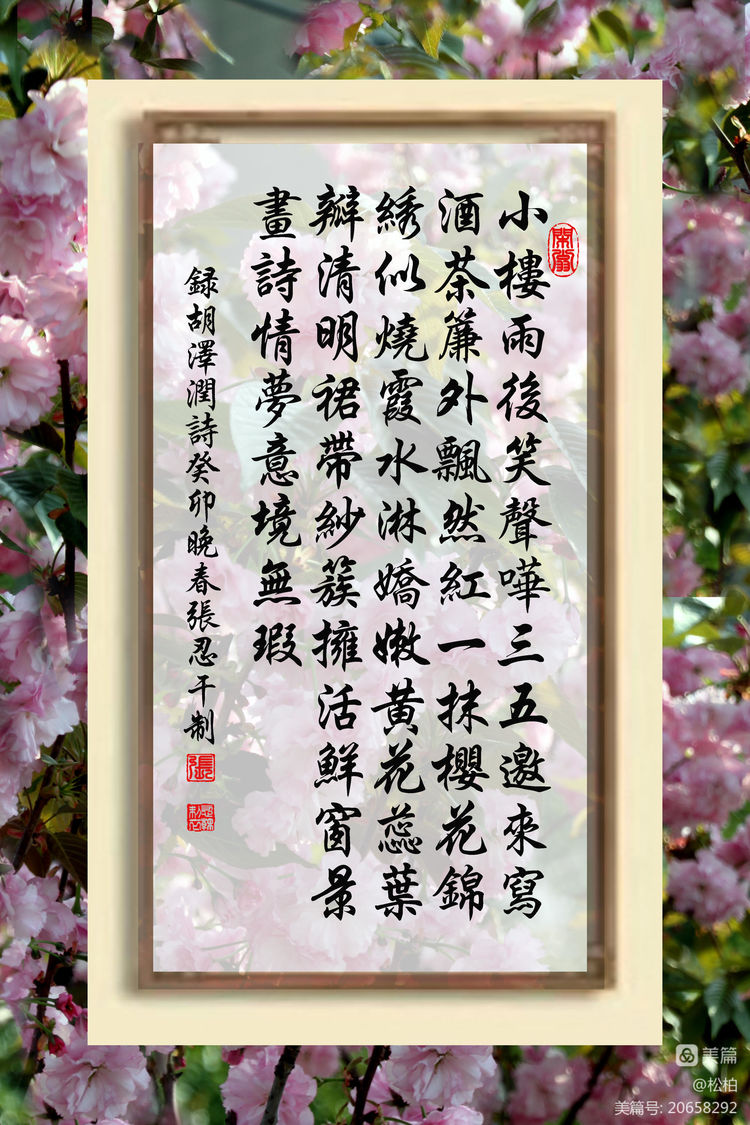 小樓雨後笑聲嘩三五邀來寫
酒茶簾外飄然紅一抹櫻花錦
綉似燒霞水淋嬌嫩黃花蕊葉
瓣清明裙帶紗簇擁活鮮窗景
畫詩情夢意境無瑕
録胡澤潤詩癸卯晚春張忍干制
張
美篇
@松柏
美篇号: 20658292